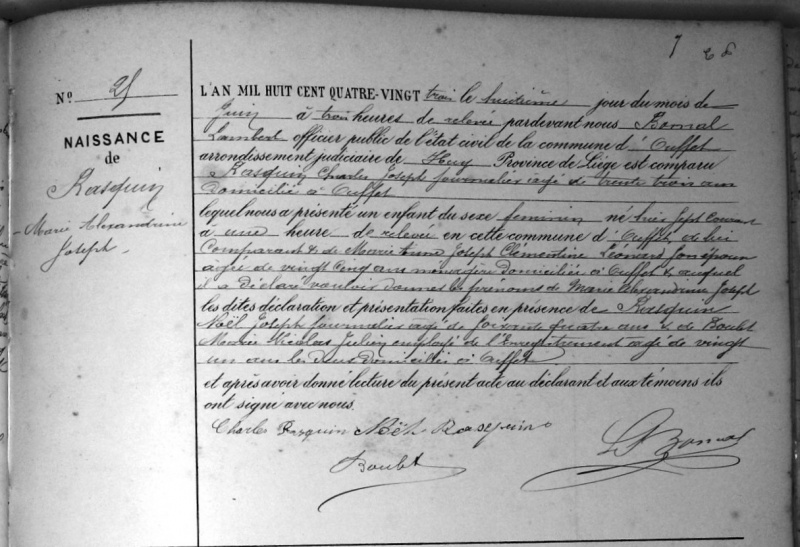 7 28
N° 25
NAISSANCE
de
Rasquin
Marie Alexandrine
Joseph
L'AN MIL HUIT CENT QUATRE-VINGT trois le huitième jour du mois de
Juin à trois heures de relevée pardevant nous Bomal
Lambert officier public de l'état civil de la commune d'Ouffet
arrondissement judiciaire de Huy Province de Liège est comparu
Rasquin Charles Joseph journalier agé de trente trois ans
domicilié à Ouffet
lequel nous a présenté un enfant du sexe feminin né hier sept courant
à une heure de relevée en cette commune d'Ouffet, de lui
Comparant & de Marie Anne Joseph Clémentine Léonard son épouse
agée de vingt cinq ans ménagère domiciliée à Ouffet & auquel
il a déclaré vouloir donner les prénoms de Marie Alexandrine Joseph
les dites déclaration et présentation faites en présence de Rasquin
Noël Joseph journalier agé de soixante quatre ans & de Boulet
Marie Nicolas Julien employé de l'Enregistrement agé de vingt
un ans les deux domiciliés à Ouffet
et après avoir donné lecture du présent acte au déclarant et aux témoins ils
ont signé avec nous.
Charles Rasquin Noël Rasquin
Boulet
L Bomal